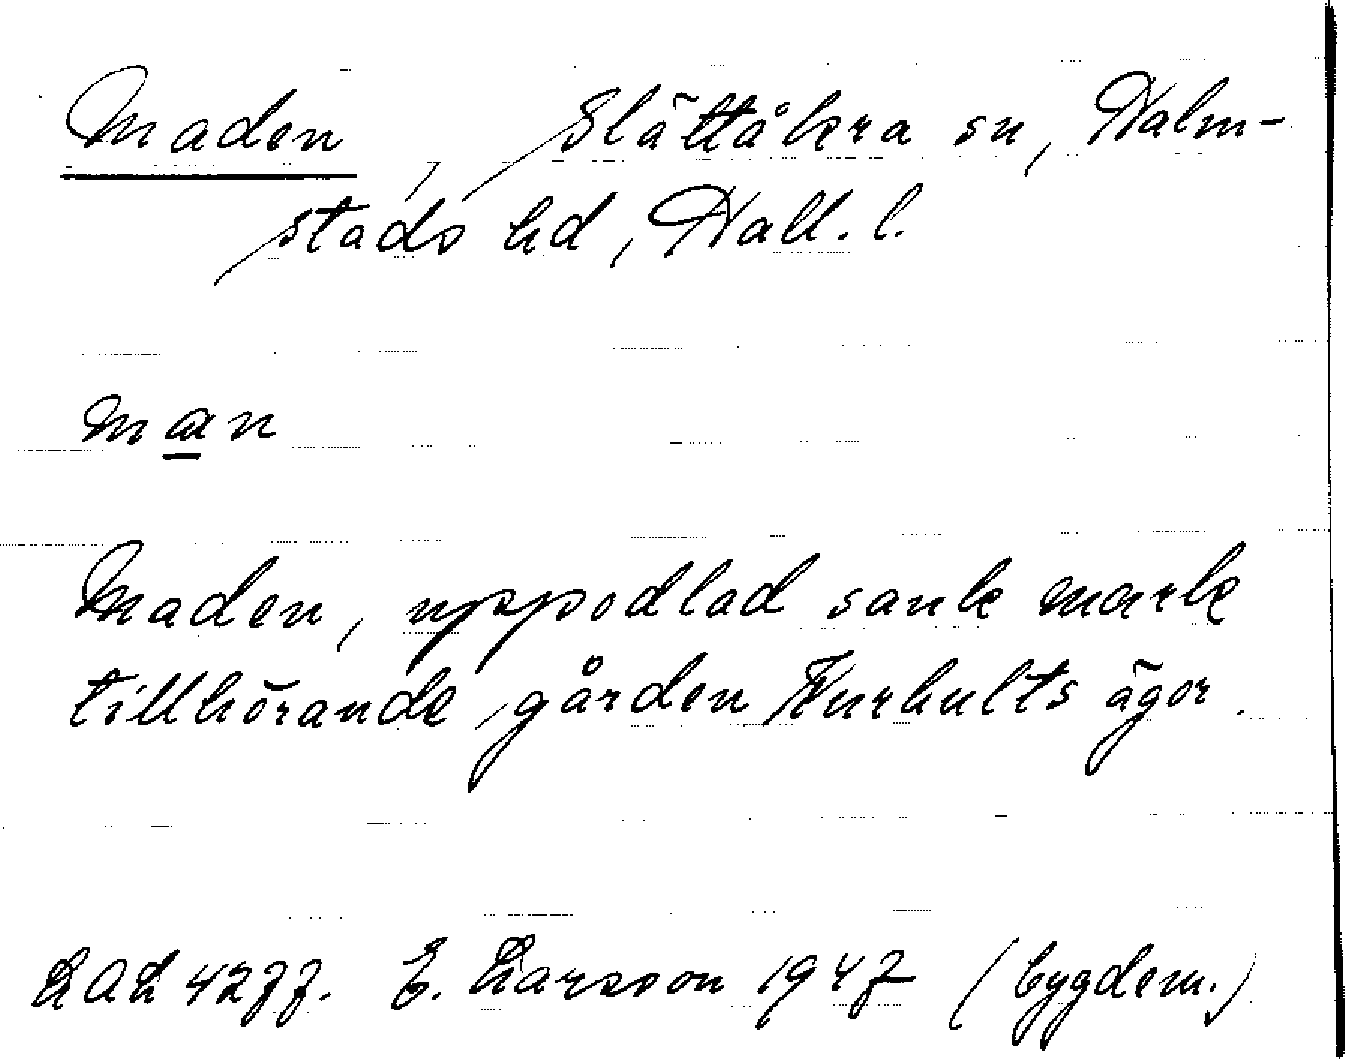 Maden, Slättåkra sn, Halm-
stads hd, Hall. l.
man
Maden, uppodlad sank mark
tillhörande gården Furhults ägor.
LAL 4277. E. Larsson 1947 (bygdem.)